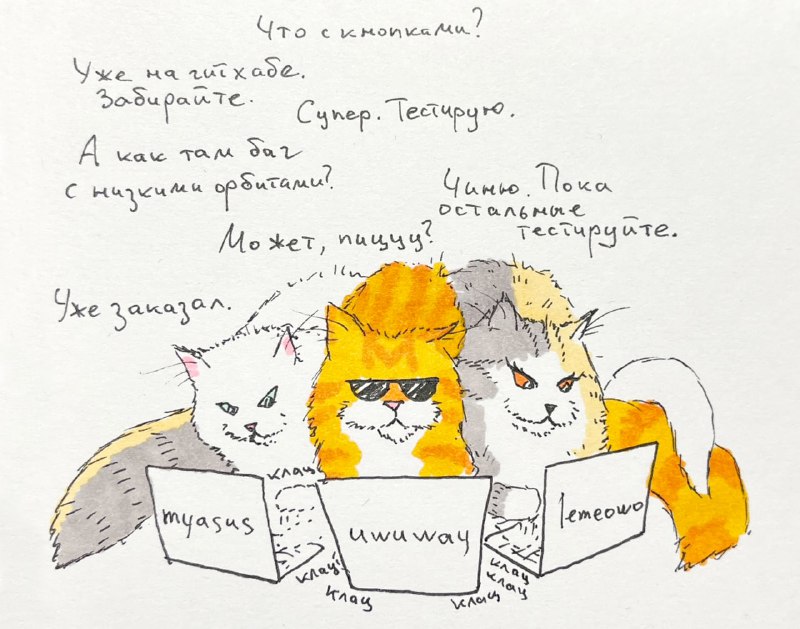 Что с кнопками?
Уже на гитхабе.
Забирайте.
Супер. Тестирую.
А как там баг
с низкими орбитами?
Чиню. Пока
остальные
тестируйте.
Может, пиццу?
Уже заказал.
M
клац
myasus
uwuway
lemeowo
клац
клац
клац
клац
клац